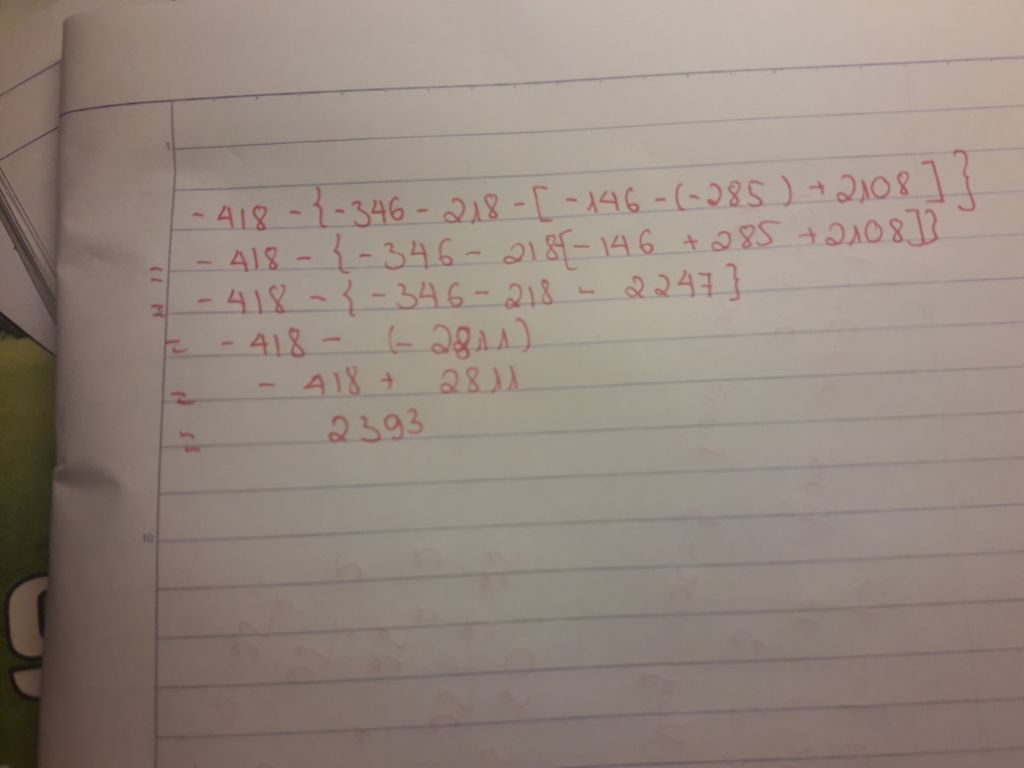 -418-{-346-218-[-146-(-285)+2108]}
= -418-{-346-218[-146+285+2108]}
= -418-{-346-218-2247}
= -418-(-2811)
= -418+2811
= 2393
10
9